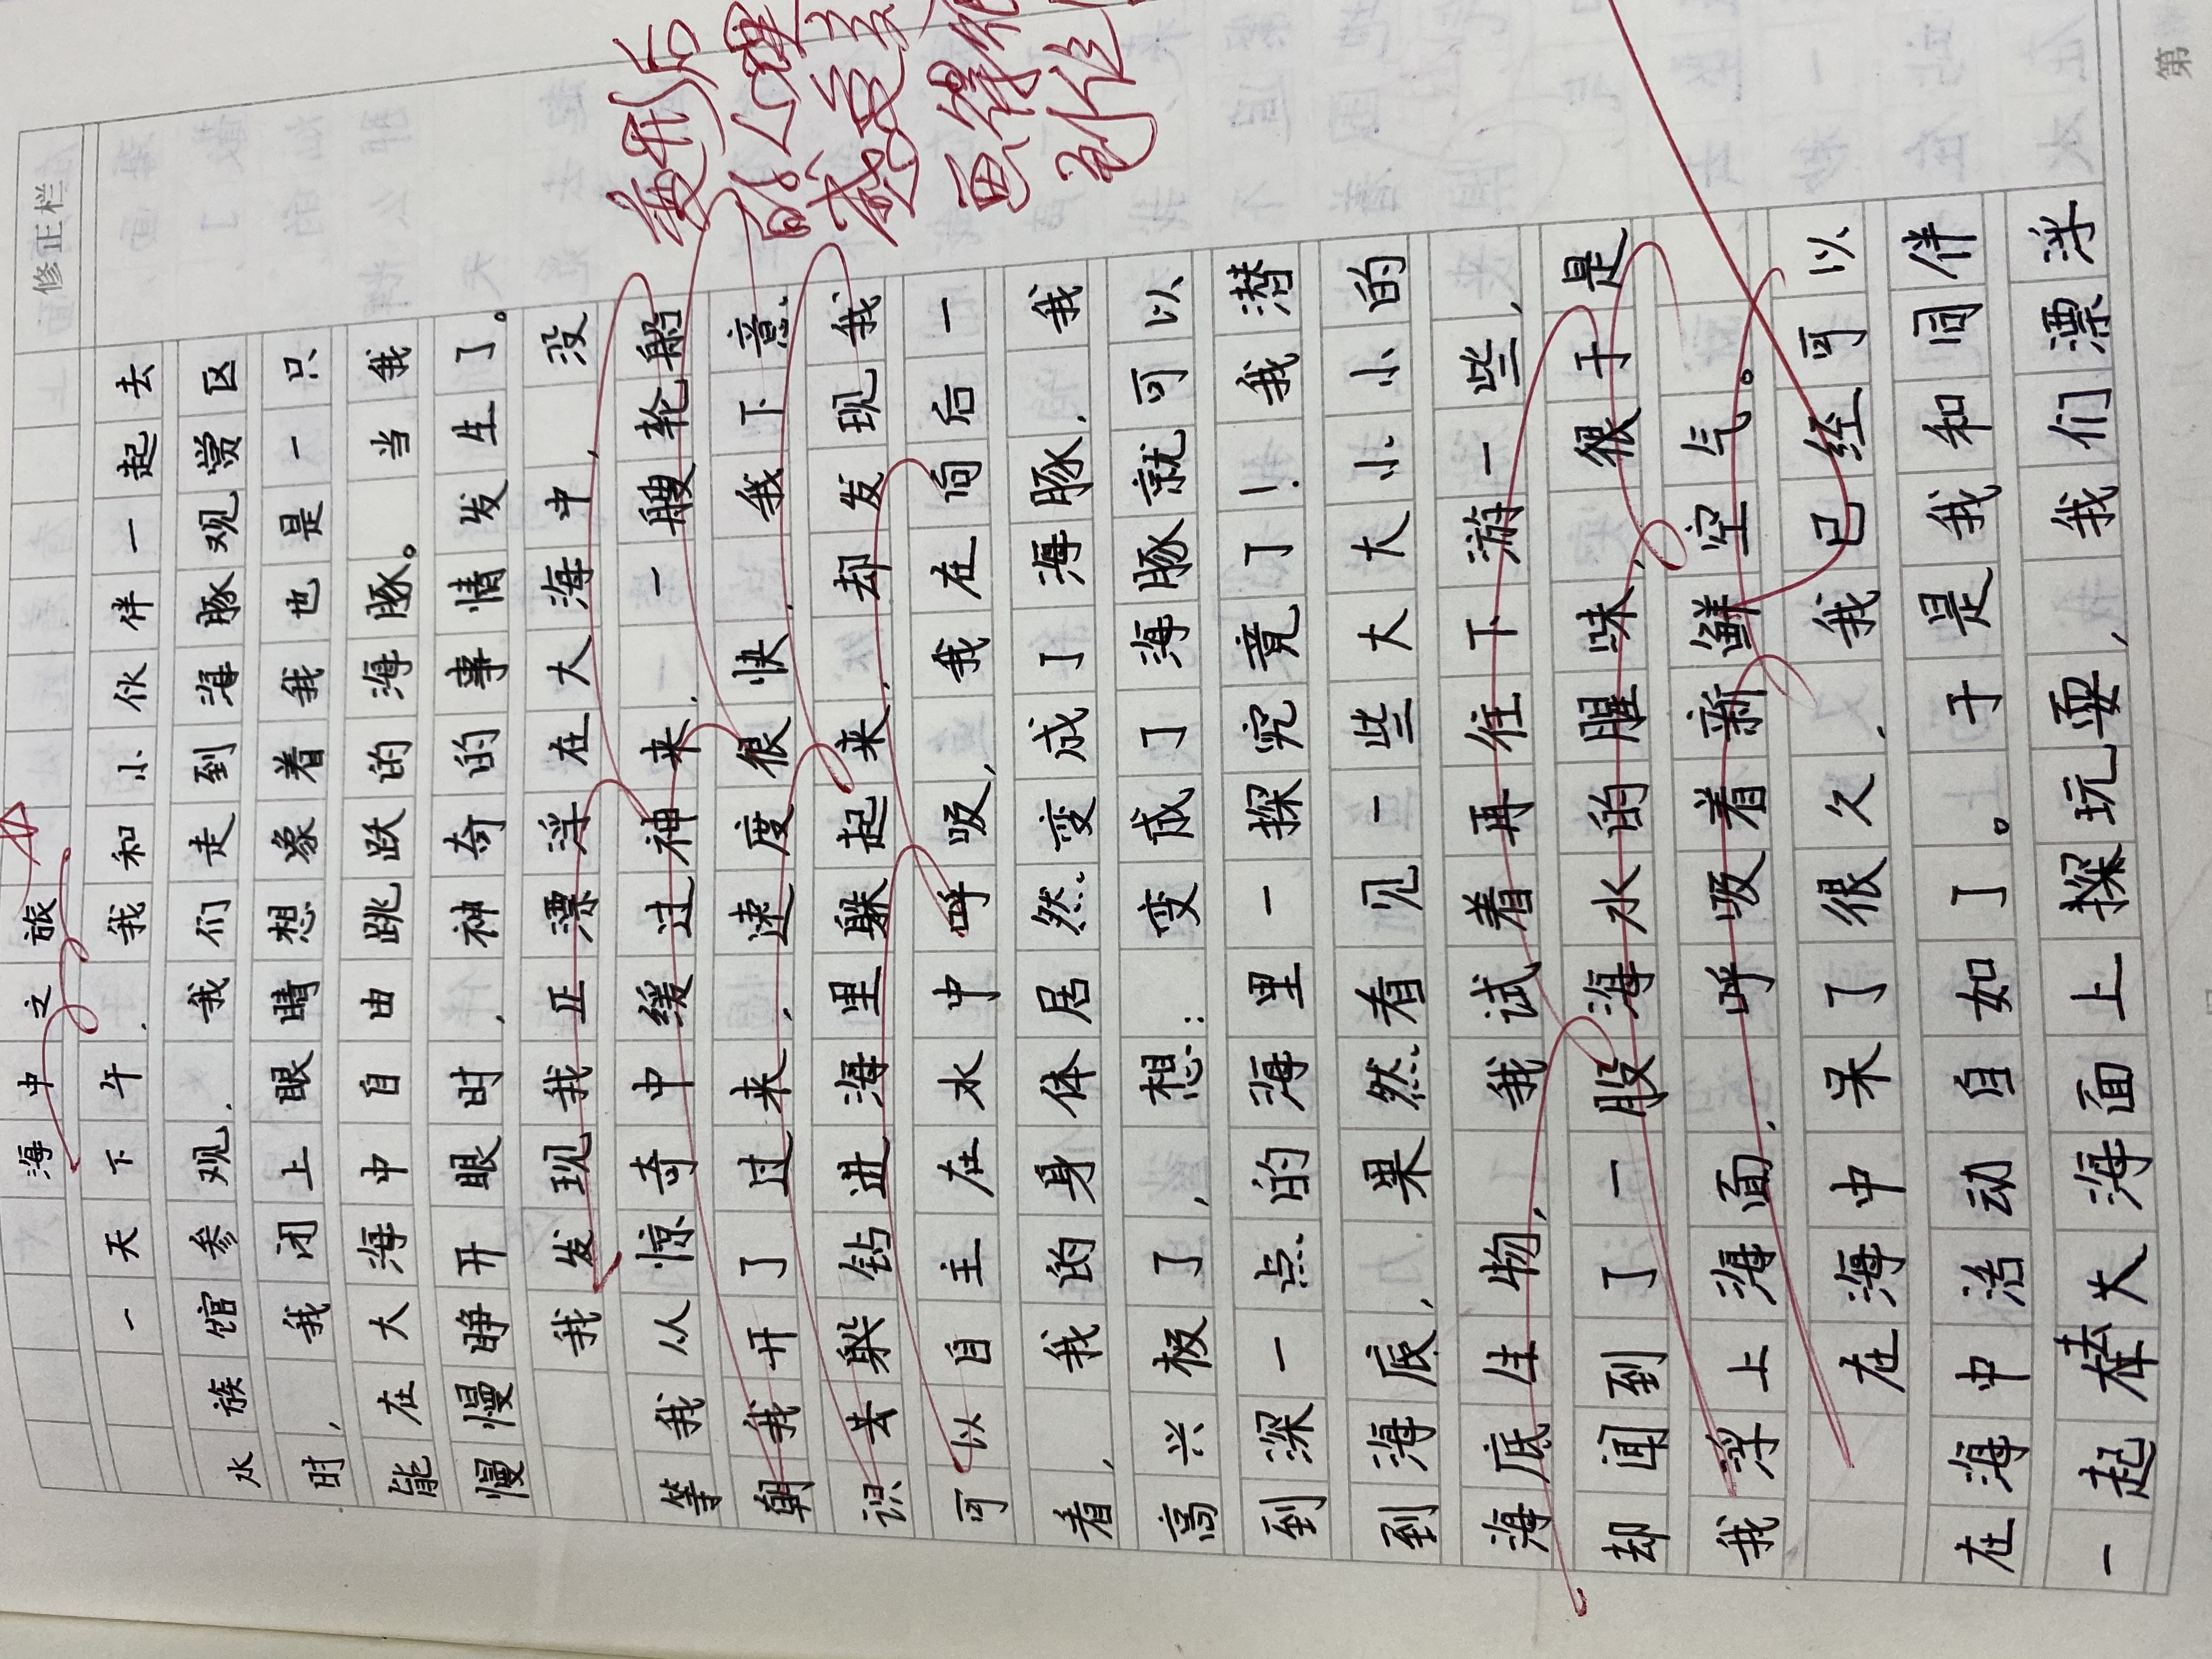 修正栏
海中之旅
一天下午,我和小伙伴一起去
水族馆参观,我们走到海豚观赏区
时,我闭上眼睛想象着我也是一只
能在大海中自由跳跃的海豚。当我
慢慢睁开眼时,神奇的事情发生了。
我发现我正漂浮在大海中,没
等我从惊奇中缓过神来,一艘轮船
朝我开了过来,速度很快,我下意
识去躲钻进海里躲起来,却发现我
可以自主在水中呼吸,我在向后一
看,我的身体居然变成了海豚,我
高兴极了,想:变成了海豚就可以
到深一点的海里一探究竟了!我潜
到海底,果然看见一些大大小小的
海底生物,我试着再往下游一些,
却闻到了一股海水的腥味,很于是
我浮上海面,呼吸着新鲜空气。
在海中呆了很久,我已经可以
在海中活动自如了。于是我和同伴
一起在大海面上探玩耍,我们漂浮
变形后
第